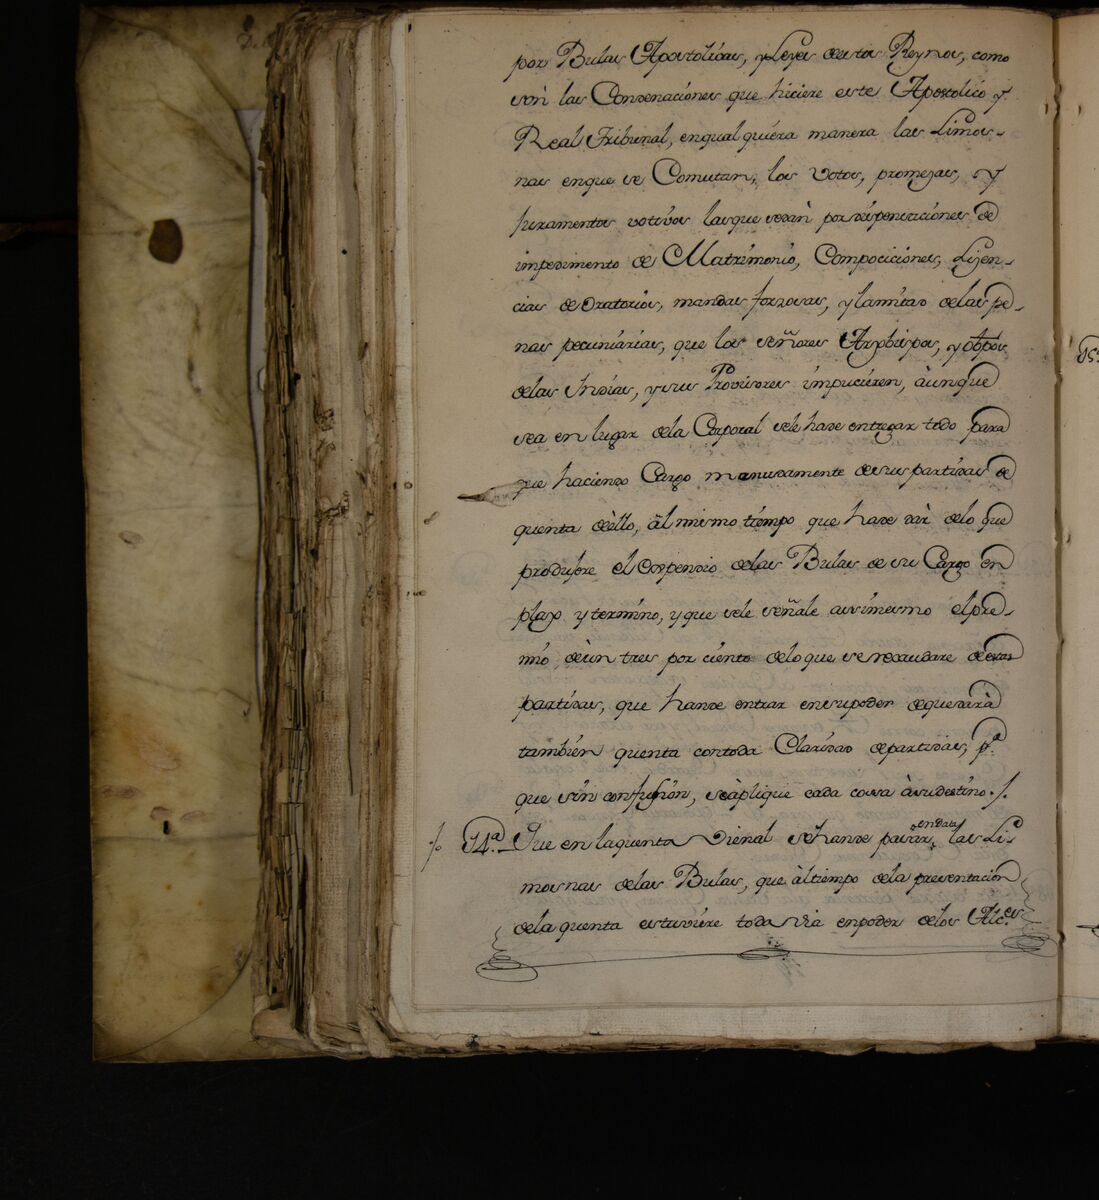 por Bulas Apostolicas, y Leyes destos Reynos, como
son las Condenaciones que hiciere este Apostolico y
Real Tribunal, enqualquiera manera las Limos-
nas enque se Comutan, los Votos, promesas, y
juramentos votivos las que seran por dispensaciones de
impedimento de Matrimonio, Composiciones, Lisen-
cias de Oratorios, mandas forzosas, y la mitad delas pe-
nas pecuniarias, que los señores Arzobispos, y Obpos
delas Indias, y sus Provisores impucieren, àunque
sea en lugar dela Corporal sele hade entregar todo para
que haciendo Cargo menudamente desus partidas de
quenta dèllo, àl mismo tiempo que hade dàr delo que
produjere el Expendio delas Bulas de su Cargo en
plazo y termino, y que sele señale assimesmo el pre-
mio deùn tres por ciento delo que se recaudare de estas
partidas, que hande entrar ensu poder de que darà
tambien quenta con toda Claridad de partidas, pa.
que sin confusion, seàplique cada cossa àsu destino ./.
./. 14a. Que en la quenta Vienal sehande pasàr en data las Li-
mosnas delas Bulas, que àl tiempo dela presentacion
dela quenta estuviere toda via en poder delos Alces.
15